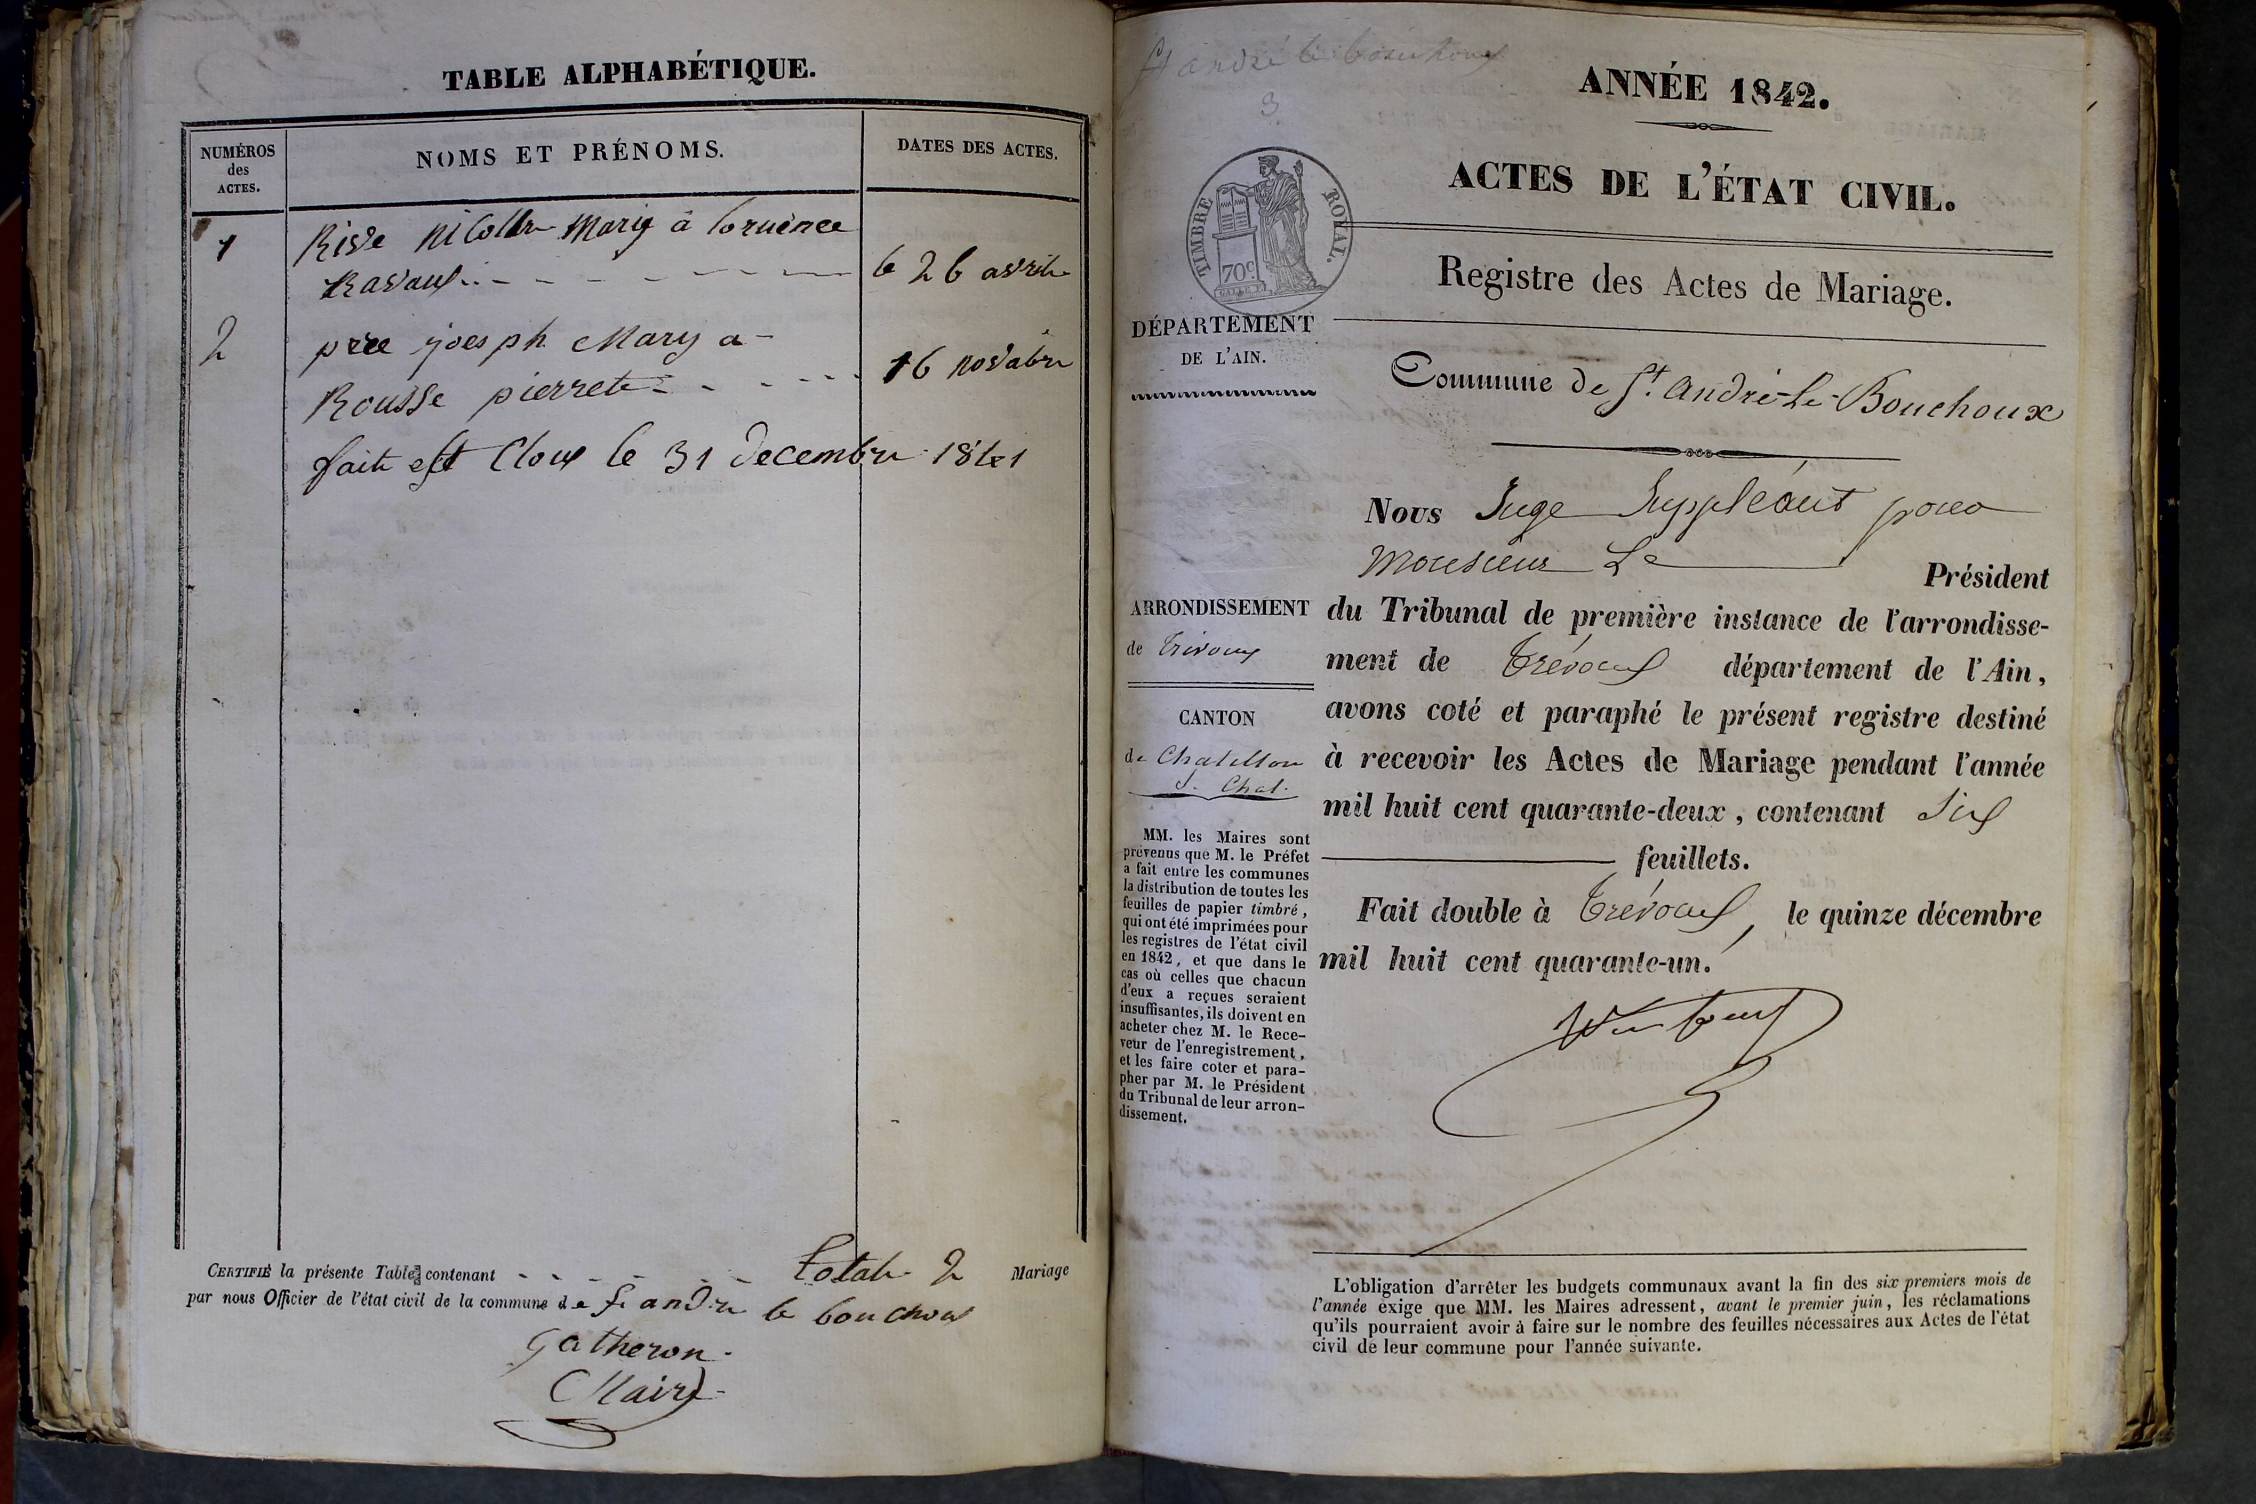 TABLE ALPHABÉTIQUE.
NUMÉROS
des
ACTES.
NOMS ET PRÉNOMS.
DATES DES ACTES.
1
Rive Marig a
le 26 avrile
2
pree joesph Mary a
Rousse pierrete
16
faite est Clous le 31 decembre 1841
CERTIFIÉ la présente Table contenant totale 2 Mariage
par nous Officier de l'état civil de la commune de St andre le bouchoux
gatheron
Maire
St andré le bouchoux
3
ANNÉE 1842.
ACTES DE L'ÉTAT CIVIL.
TIMBRE ROYAL.
70c
Registre des Actes de Mariage.
DÉPARTEMENT
DE L'AIN.
Commune de St. André-Le-Bouchoux
Nous Juge Suppléant pour
Monsieur Le Président
du Tribunal de première instance de l'arrondisse-
ment de Trévoux département de l'Ain,
avons coté et paraphé le présent registre destiné
à recevoir les Actes de Mariage pendant l'année
mil huit cent quarante-deux, contenant Six
feuillets.
Fait double à Trévoux, le quinze décembre
mil huit cent quarante-un.
ARRONDISSEMENT
de Trévoux
CANTON
de Chatillon
s. Chal.
MM. les Maires sont
prévenus que M. le Préfet
a fait entre les communes
la distribution de toutes les
feuilles de papier timbré,
qui ont été imprimées pour
les registres de l'état civil
en 1842, et que dans le
cas où celles que chacun
d'eux a reçues seraient
insuffisantes, ils doivent en
acheter chez M. le Rece-
veur de l'enregistrement,
et les faire coter et para-
pher par M. le Président
du Tribunal de leur arron-
dissement.
L'obligation d'arrêter les budgets communaux avant la fin des six premiers mois de
l'année exige que MM. les Maires adressent, avant le premier juin, les réclamations
qu'ils pourraient avoir à faire sur le nombre des feuilles nécessaires aux Actes de l'état
civil de leur commune pour l'année suivante.